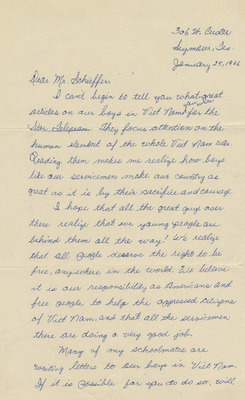 306 N. Custer
Seymour, Tex.
January 25, 1966
Dear Mr. Schieffer:
I can't begin to tell you what great
articles on our boys in Viet Nam for the
Star Telegram. They focus attention on the
human element of the whole Viet Nam war.
Reading them makes me realize how boys
like our servicemen make our country as
great as it is by their sacrifice and courage.
I hope that all the great guys over
there realize that we young people are
behind them all the way! We realize
that all people deserve the right to be
free, anywhere in the world. We believe
it is our responsibility as Americans and
free people to help the oppressed citizens
of Viet Nam, and that all the servicemen
there are doing a very good job.
Many of my schoolmates are
writing letters to our boys in Viet Nam.
If it is possible for you to do so, will